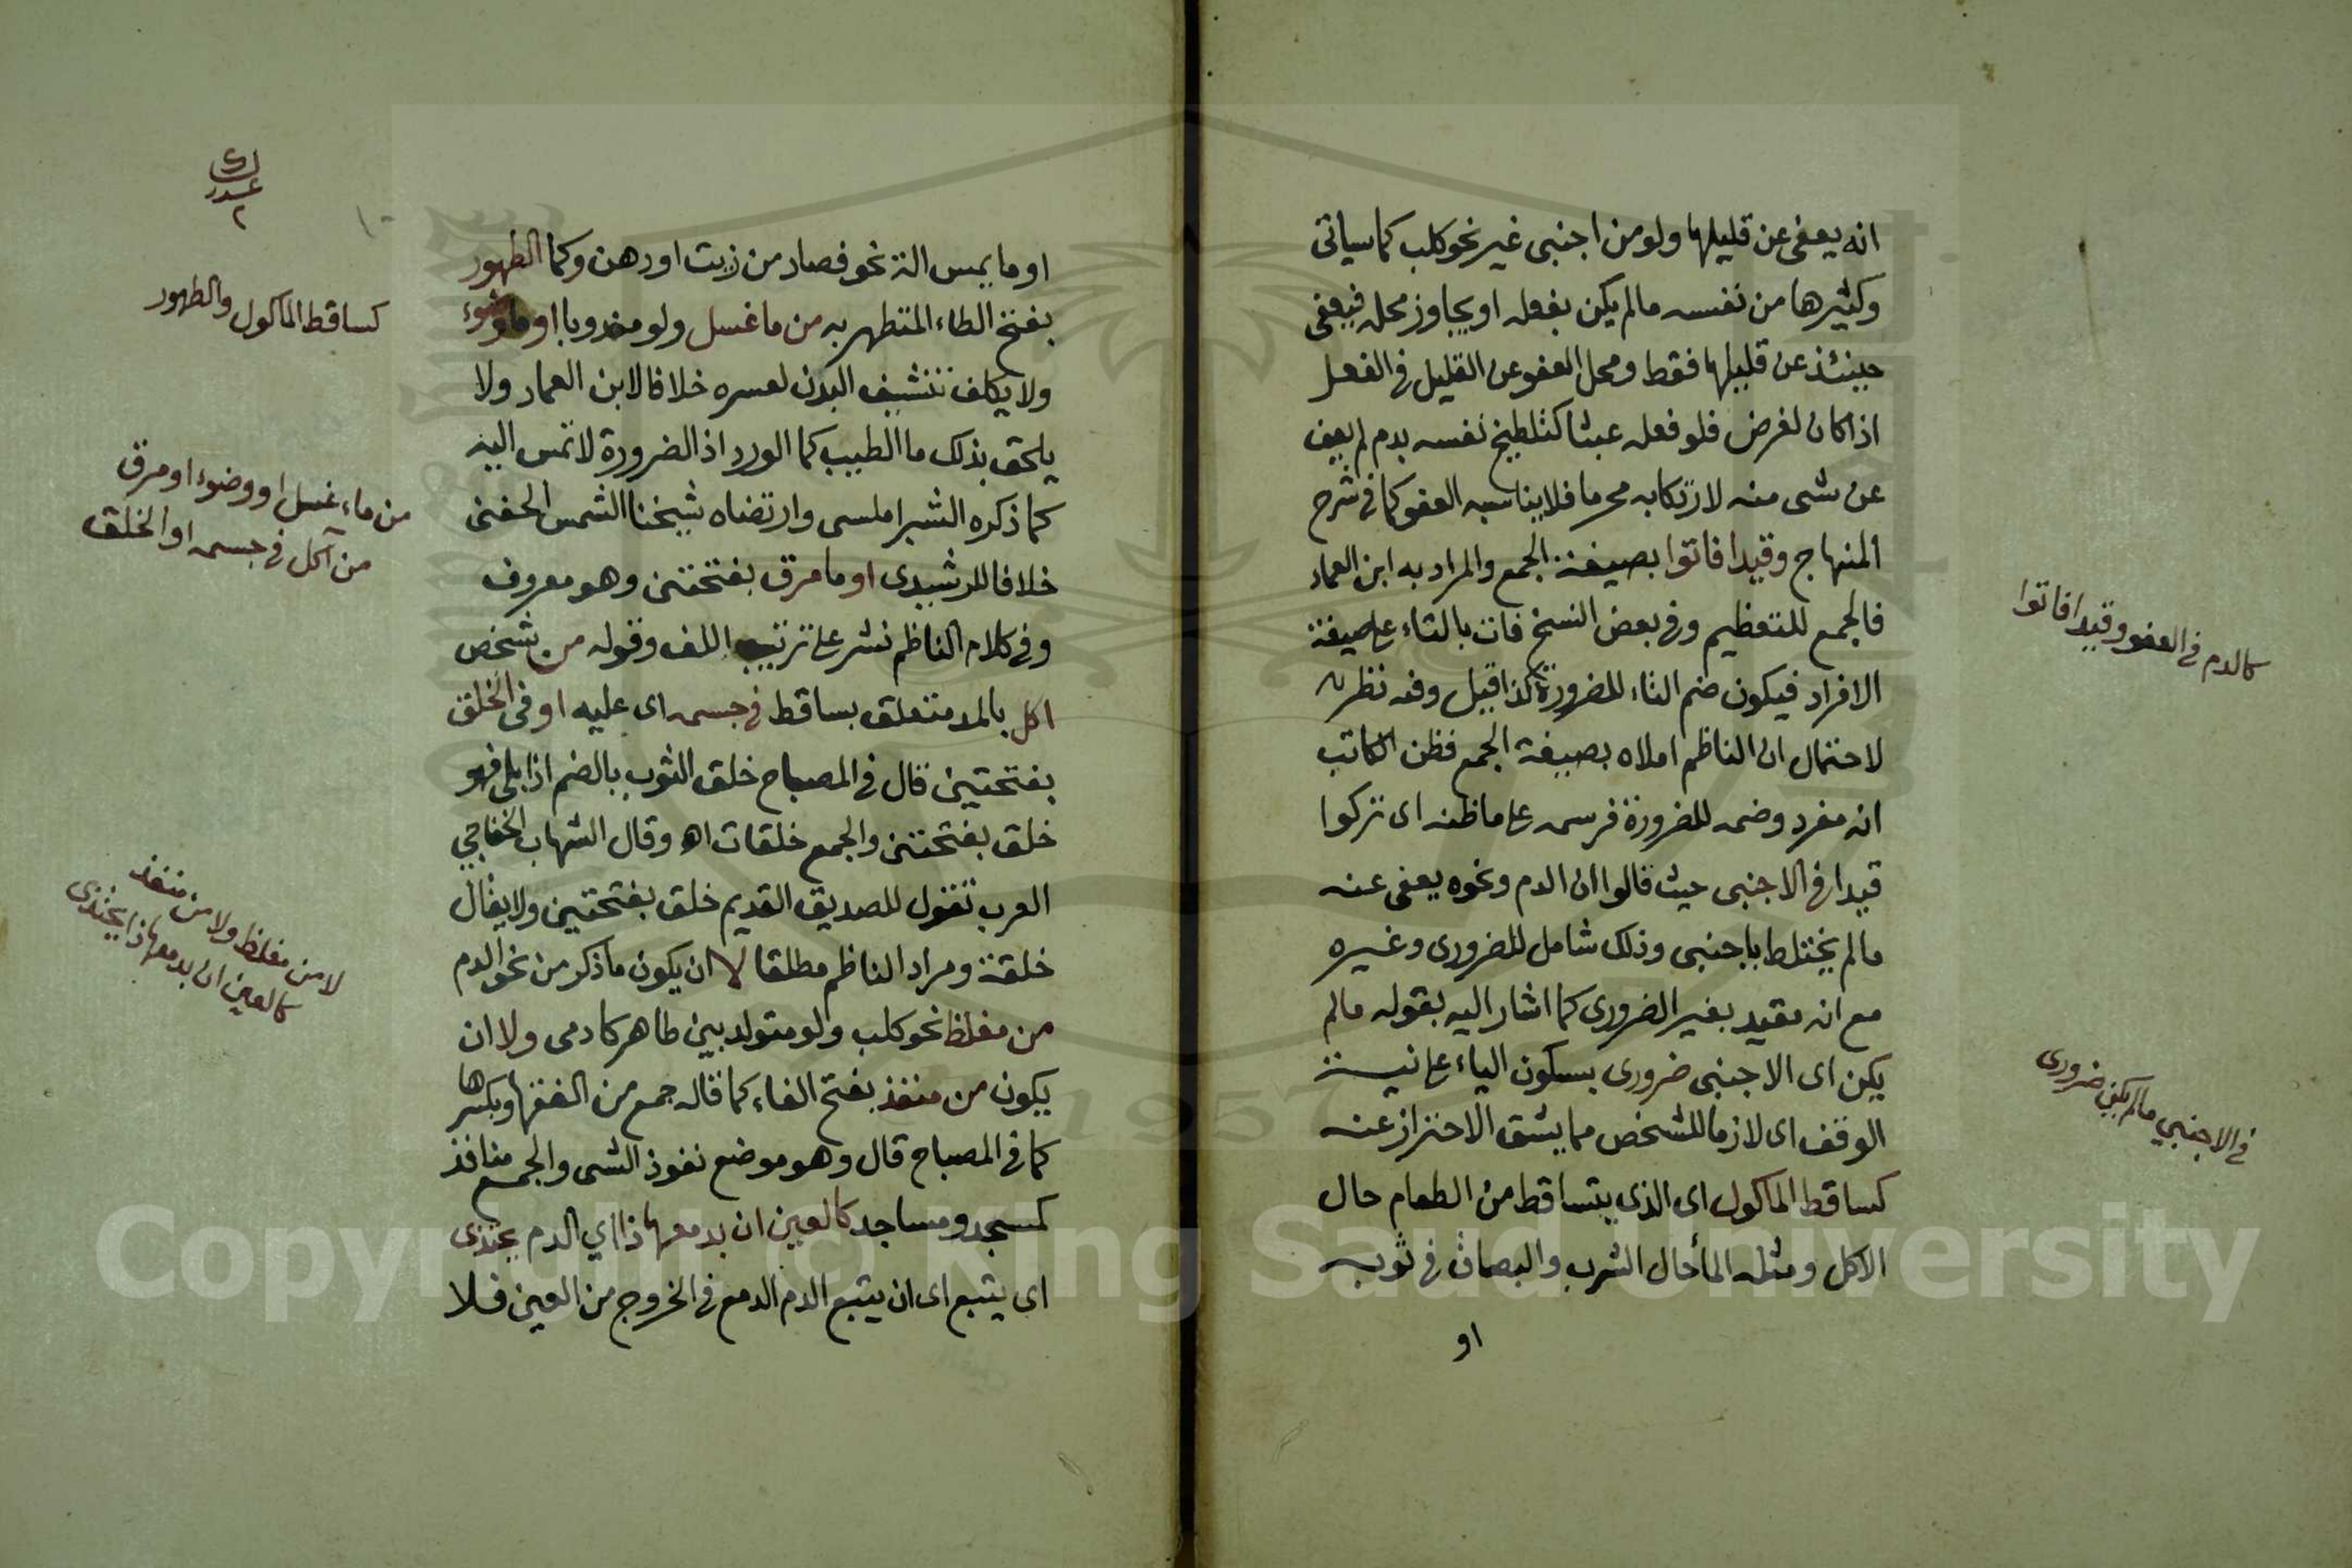 انه يعفى عن قليلها ولو من اجنبى غير نحو كلب كما سياتى
وكثيرها من نفسه مالم يكن بفعله او يجاوز محله فيعفى
حينئذ عن قليلها فقط ومحل العفو عن القليل فى الفعل
اذا كان لغرض فلو فعله عبثا كتلطيخ نفسه بدم لم يعف
عن شى منه لارتكابه محرما فلا يناسبه العفو كما فى شرح
المنهاج وقيدا فاتوا بصيغة الجمع والمراد به ابن العماد
فالجمع للتعظيم وفى بعض النسخ فات بالتاء على صيغة
الافراد فيكون ضم التاء للضرورة كذا قيل وفيه نظر
لاحتمال ان الناظم املاه بصيغة الجمع فظن الكاتب
انه مفرد وضمه للضرورة فرسمه على ما ظنه اى تركوا
قيدا فى الاجنبى حيث قالوا ان الدم ونحوه يعفى عنه
مالم يختلط باجنبى وذلك شامل للضرورى وغيره
مع انه مقيد بغير الضرورى كما اشار اليه بقوله مالم
يكن اى الاجنبى ضرورى بسكون الياء على نية
الوقف اى لازما للشخص مما يشق الاحتراز عنه
كساقط الماكول اى الذى يتساقط من الطعام حال
الاكل ومثله الماء حال الشرب والبصاق فى ثوبه
او
كالدم فى العفو وقيدا فاتوا
فى الاجنبي مالم يكن ضرورى
او ما يمس الة نحو فصاد من زيت او دهن وكما الطهور
بفتح الطاء المتطهر به من ما غسل ولو مندوبا او ما وضوء
ولا يكلف تنشيف البدن لعسره خلافا لابن العماد ولا
يلحق بذلك ما الطيب كما الورد اذ الضرورة لا تمس اليه
كما ذكره الشبراملسى وارتضاه شيخنا الشمس الحفنى
خلافا للرشيدى او ما مرق بفتحتين وهو معروف
وفى كلام الناظم نشر على ترتيب اللف وقوله من شخص
اكل بالمد متعلق بساقط فى جسمه اى عليه او فى الخلق
بفتحتين قال فى المصباح خلق الثوب بالضم اذا بلى فهو
خلق بفتحتين والجمع خلقات اه وقال الشهاب الخفاجي
العرب تقول للصديق القديم خلق بفتحتين ولا يقال
خلقة ومراد الناظم مطلقا لا ان يكون ما ذكر من نحو الدم
من مغلظ نحو كلب ولو متولد بين طاهر كادمى ولا ان
يكون من منفذ بفتح الفاء كما قاله جمع من الفقها وبكسرها
كما فى المصباح قال وهو موضع نفوذ الشى والجمع منافذ
كمسجد ومساجد كالعين ان بدمعها ذا اي الدم يحتذى
اى يتبع اى ان يتبع الدم الدمع فى الخروج من العين فلا
كساقط الماكول والطهور
من ماء غسل او وضوء او مرق
من آكل فى جسمه او الخلق
لا من مغلظ ولا من منفذ
كالعين ان بدمعها ذا يحتذى